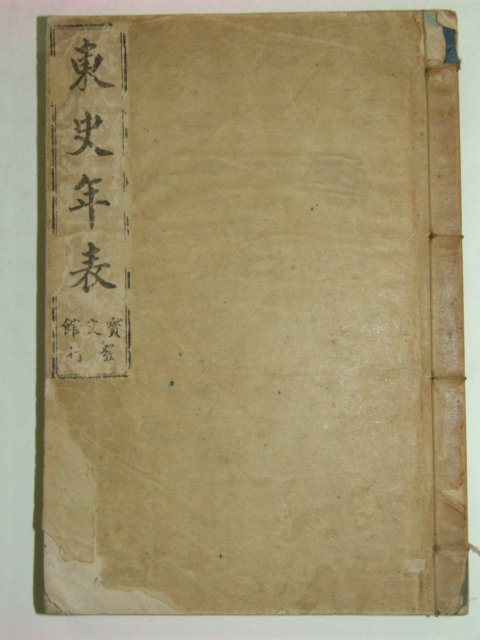 東史年表
寳文館
發行